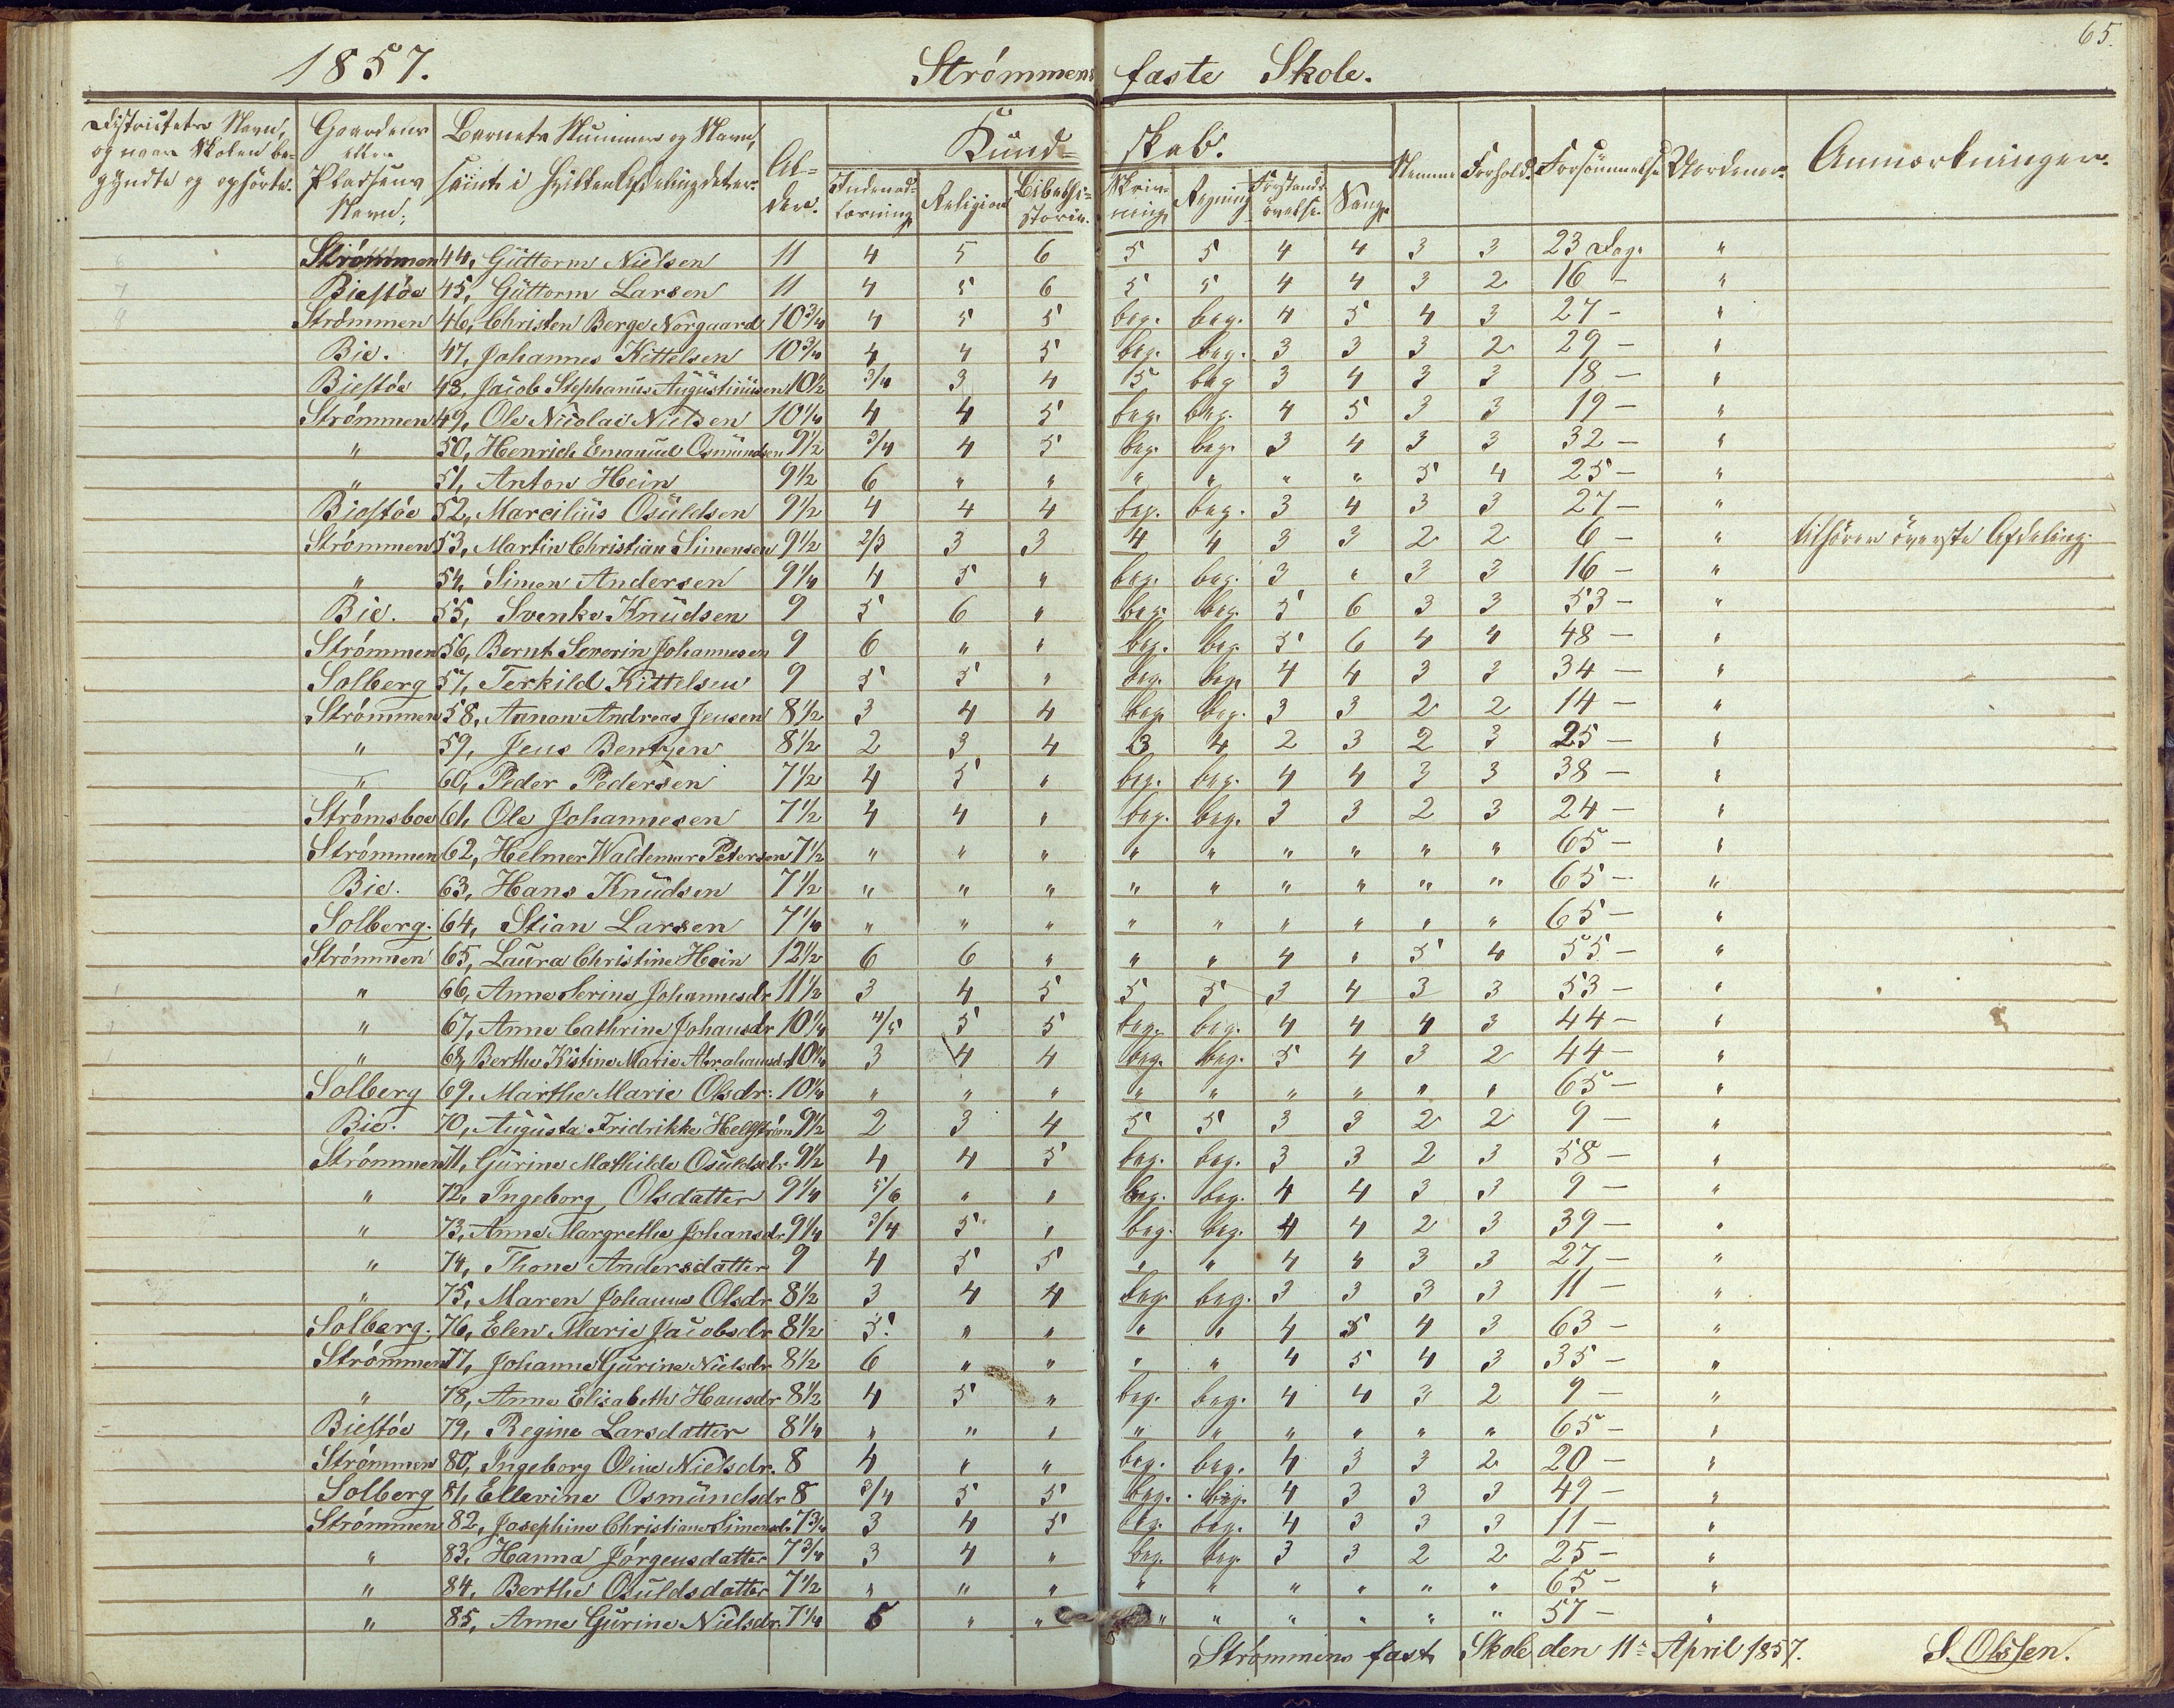 65.
1857. Strømmens faste Skole.
Districtets Navn, og naar Skolen begyndte og ophørte. | Gaardens eller Pladsens Navn. | Barnets Nummer og Navn, samt i hvilken Afdeling det er. | Alder. | Kundskab. | Nemme | Forhold. | Forsømmelse | Anmærkninger.
Indenadlæsning | Religion | Bibelhistorie. | Skrivning | Regning | Forstandsøvelse. | Sang.
Strømmen 44, Guttorm Nielsen 11 4 5 6 5 5 4 4 3 3 23 Dag. "
Biestøe 45, Guttorm Larsen 11 4 5 6 5 5 4 4 3 2 16 - "
Strømmen 46, Christen Berge Nørgaard 10 3/4 4 5 5 beg. beg. 4 5 4 3 27 - "
Bie. 47, Johannes Kittelsen 10 3/4 4 4 5 beg. beg. 3 3 3 2 29 - "
Biestøe 48, Jacob Stephanus Augustinusen 10 1/2 3/4 3 4 5 beg 3 4 3 3 18 - "
Strømmen 49, Ole Nicolai Nielsen 10 1/4 4 4 5 beg. beg. 4 5 3 3 19 - "
" 50, Henrich Emanuel Osmundsen 9 1/2 3/4 4 5 beg. beg. 3 4 3 3 32 - "
" 51, Anton Hein 9 1/2 6 " " " " " " 5 4 25 - "
Biestøe 52, Marcilius Osuldsen 9 1/2 4 4 4 beg. beg. 3 4 3 3 27 - "
Strømmen 53, Martin Christian Simensen 9 1/2 2/3 3 3 4 4 3 3 2 2 6 - " tilhører øverste Afdeling.
" 54, Simon Andersen 9 1/4 4 5 " beg. beg. 3 " 3 3 16 - "
Bie. 55, Svenke Knudsen 9 5 6 " beg. beg. 5 6 3 3 53 - "
Strømmen 56, Bernt Severin Johannesen 9 6 " " beg. beg. 5 6 4 4 48 - "
Solberg 57, Terkild Kittelsen 9 5 5 " beg. beg. 4 4 3 3 34 - "
Strømmen 58, Aanon Andreas Jensen 8 1/2 3 4 4 beg. beg. 3 3 2 2 14 - "
" 59, Jens Bentzen 8 1/2 2 3 4 3 4 2 3 2 3 25 - "
" 60, Peder Pedersen 7 1/2 4 5 " beg. beg. 4 4 3 3 38 - "
Strømsboe 61, Ole Johannesen 7 1/2 4 4 " beg. beg. 3 3 2 3 24 - "
Strømmen 62, Helmer Waldemar Petersen 7 1/2 " " " " " " " " " 65 - "
Bie. 63, Hans Knudsen 7 1/2 " " " " " " " " " 65 - "
Solberg. 64, Stian Larsen 7 1/4 " " " " " " " " " 65 - "
Strømmen 65, Laura Christine Hein 12 1/2 6 6 " " " 4 " 5 4 55 - "
" 66, Anne Serine Johannesdr 11 1/2 3 4 5 5 5 3 4 3 3 53 - "
" 67, Anne Cathrine Johansdr 10 1/4 4/5 5 5 beg. beg. 4 4 4 3 44 - "
" 68, Berthe Kistine Marie Abrahamsdr 10 1/4 3 4 4 beg. beg. 5 4 3 2 44 - "
Solberg 69. Marthe Marie Olsdr. 10 1/4 " " " " " " " " " 65 - "
Bie. 70, Augusta Fridrikke Hellstrøm 9 1/2 2 3 4 5 5 3 3 2 2 9 - "
Strømmen 71, Gurine Mathilde Osuldsdr 9 1/2 4 4 5 beg. beg. 3 3 2 3 58 - "
" 72, Ingeborg Olsdatter 9 1/4 5/6 " " beg. beg. 4 4 3 3 9 - "
" 73, Anne Margrethe Johansdr. 9 1/4 3/4 5 " beg. beg. 4 4 2 3 39 - "
" 74, Thone Andersdatter 9 4 5 5 " " 4 " 3 3 27 - "
" 75, Maren Johanne Olsdr 8 1/2 3 4 4 beg. beg. 3 3 3 3 11 - "
Solberg. 76, Elen Marie Jacobsdr 8 1/2 5 " " " " 4 5 4 3 63 - "
Strømmen 77, Johanne Gurine Nielsdr 8 1/2 6 " " " " 4 5 4 3 35 - "
" 78, Anne Elisabeth Hansdr 8 1/2 4 5 " beg. beg. 4 4 3 2 9 - "
Biestøe 79, Regine Larsdatter 8 1/4 " " " " " " " " " 65 - "
Strømmen 80, Ingeborg Oline Nielsdr. 8 4 " " beg. beg. 4 3 3 2 20 - "
Solberg 81, Ellevine Osmundsdr 8 3/4 5 5 beg. beg. 4 3 3 3 49 - "
Strømmen 82, Josephine Christiane Simensdr 7 3/4 3 4 5 beg. beg. 4 3 3 3 11 - "
" 83, Hanna Jørgensdatter 7 3/4 3 4 " beg. beg. 3 3 2 2 25 - "
" 84, Berthe Osuldsdatter 7 1/2 " " " " " " " " " 65 - "
" 85, Anne Gurine Nielsdr. 7 1/4 5 " " " " " " " " 57 - "
Strømmens fast Skole den 11te April 1857. S. Olssen.